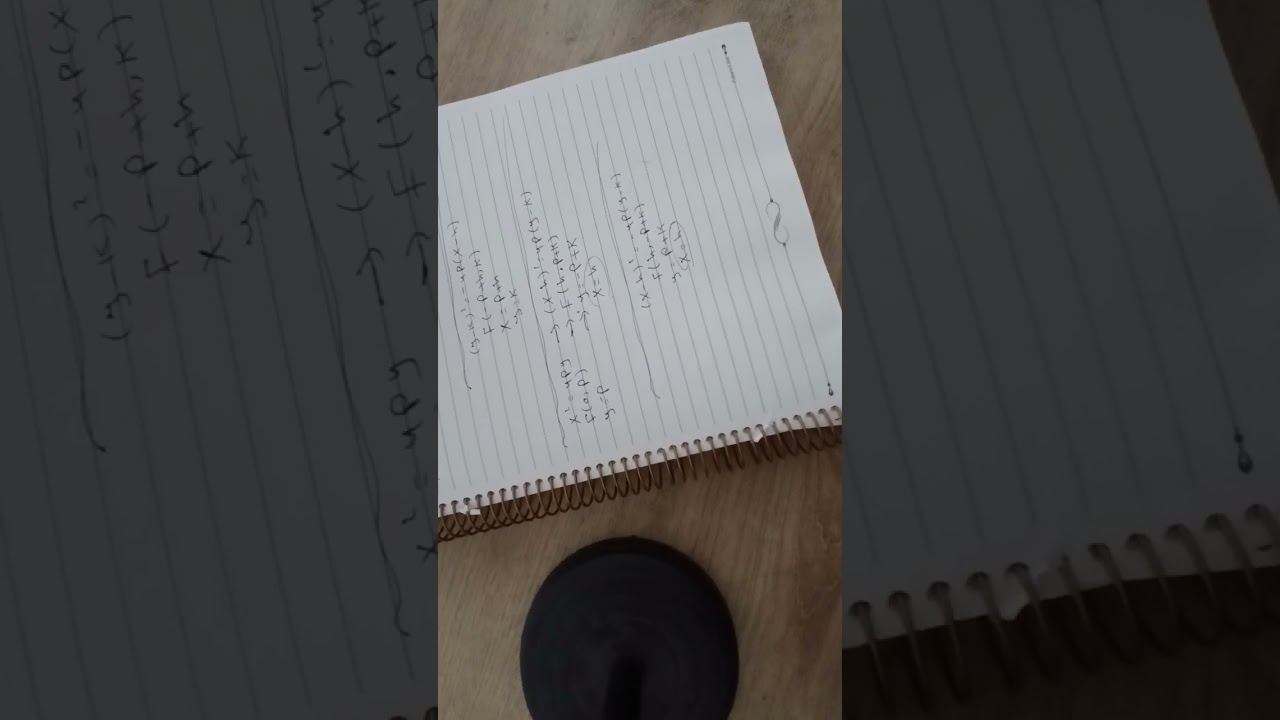 (y-k)² = -4p(x-h)
F(-p+h, k)
x = p+h
y = k
x² = 4py → (x-h)² = 4p(y-k)
F(0, p) → F(h, p+k)
y = p → y = -p+k
x = h
(x-h)² = -4p(y-k)
F(h, -p+k)
y = p+k
(x=h)